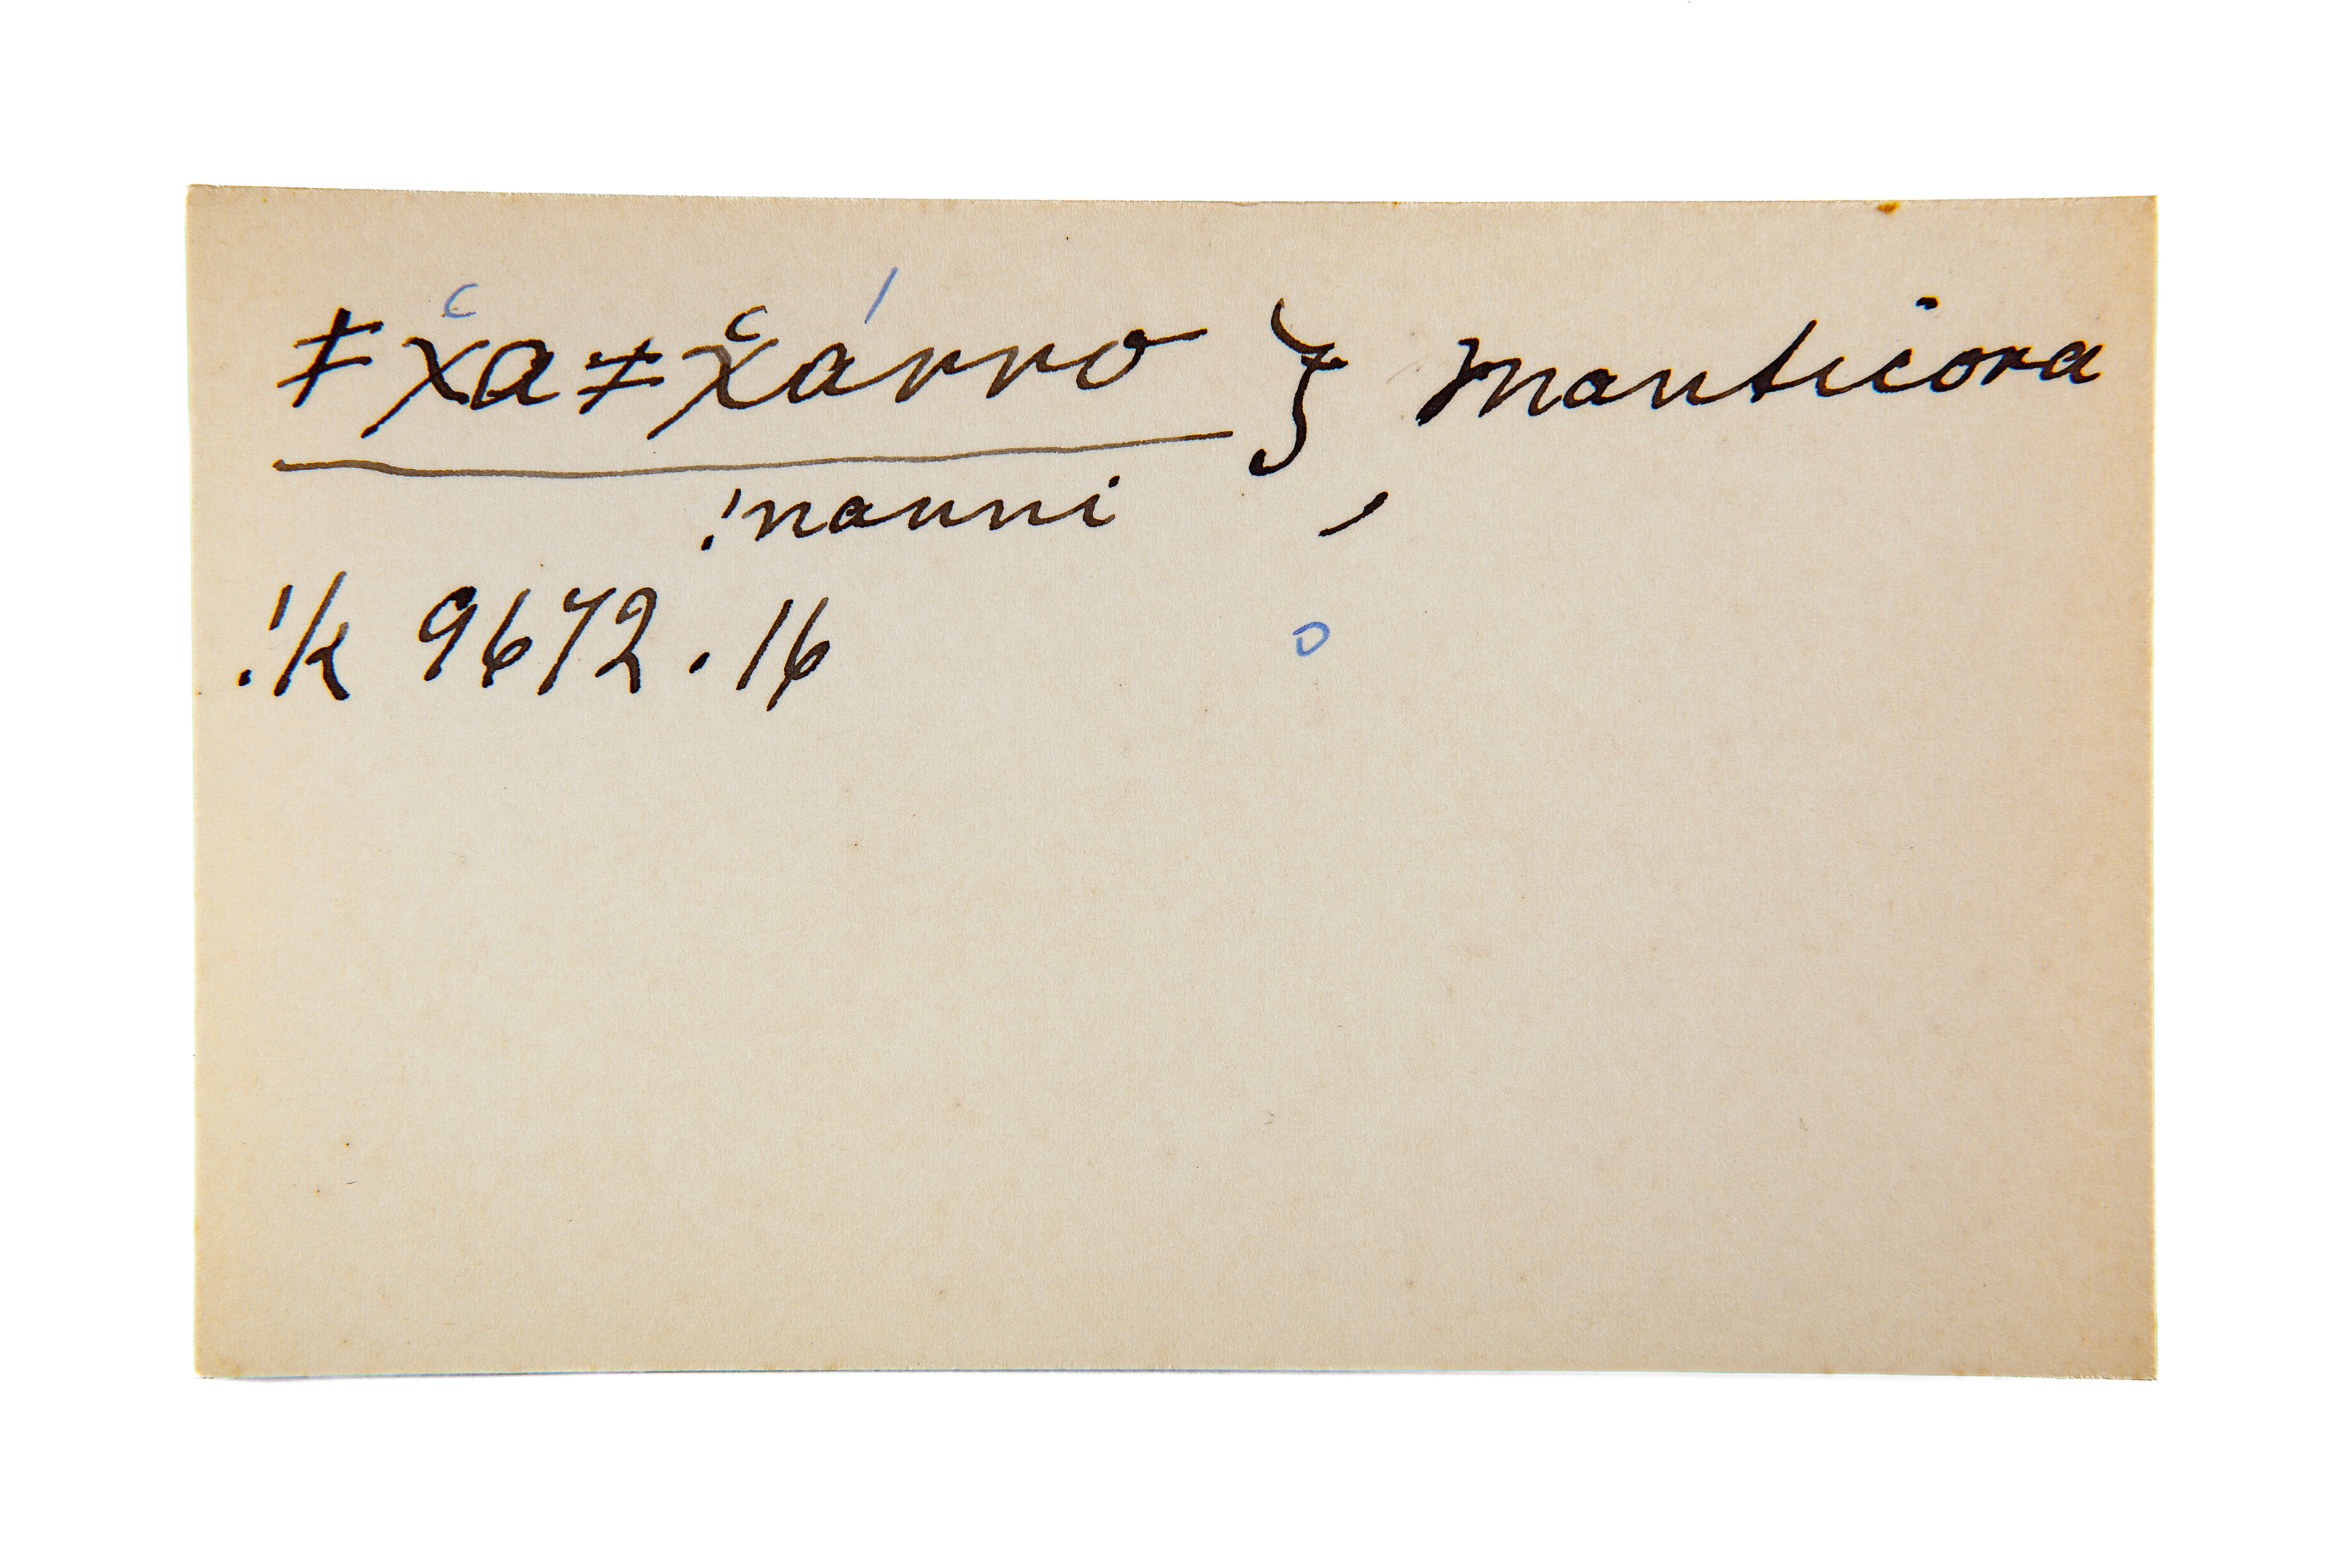 ǂχ̆a ǂχ̆árro } Manticora
!nanni ,
!k 9672.16